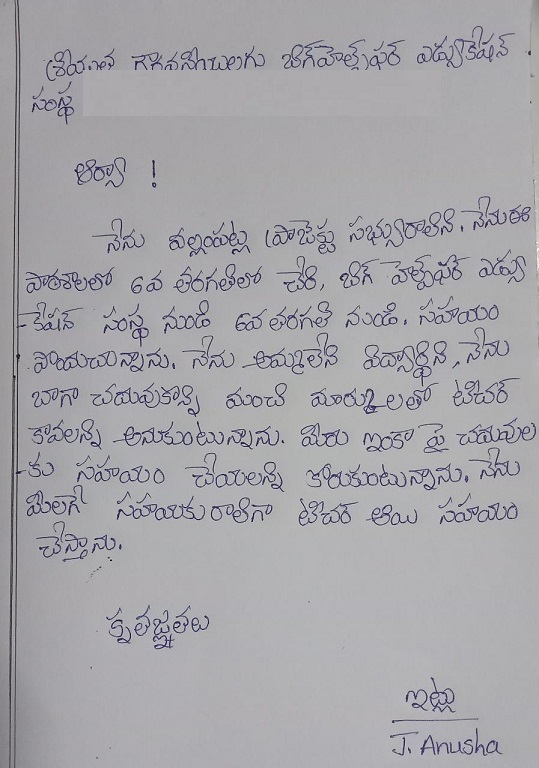 శ్రీయుత గౌరవనీయులగు బిగ్‌హెల్ప్‌ఫర్ ఎడ్యుకేషన్
సంస్థ
ఆర్యా !
నేను వల్లంపట్ల ప్రాజెక్టు సభ్యురాలిని. నేను ఈ
పాఠశాలలో 6వ తరగతిలో చేరి, బిగ్ హెల్ప్‌ఫర్ ఎడ్యు
-కేషన్ సంస్థ నుండి 6వ తరగతి నుండి. సహయం
పొందుచున్నాను. నేను అమ్మలేని విద్యార్థిని, నేను
బాగా చదువుకొన్ని మంచి మార్కులతో టీచర్
కావలన్ని అనుకుంటున్నాను. మీరు ఇంకా పై చదువుల
-కు సహయం చేయలన్ని కోరుకుంటున్నాను. నేను
మీలగే సహయకురాలిగా టీచర్ ఆయి సహయం
చేస్తాను.
కృతజ్ఞతలు
ఇట్లు
J. Anusha